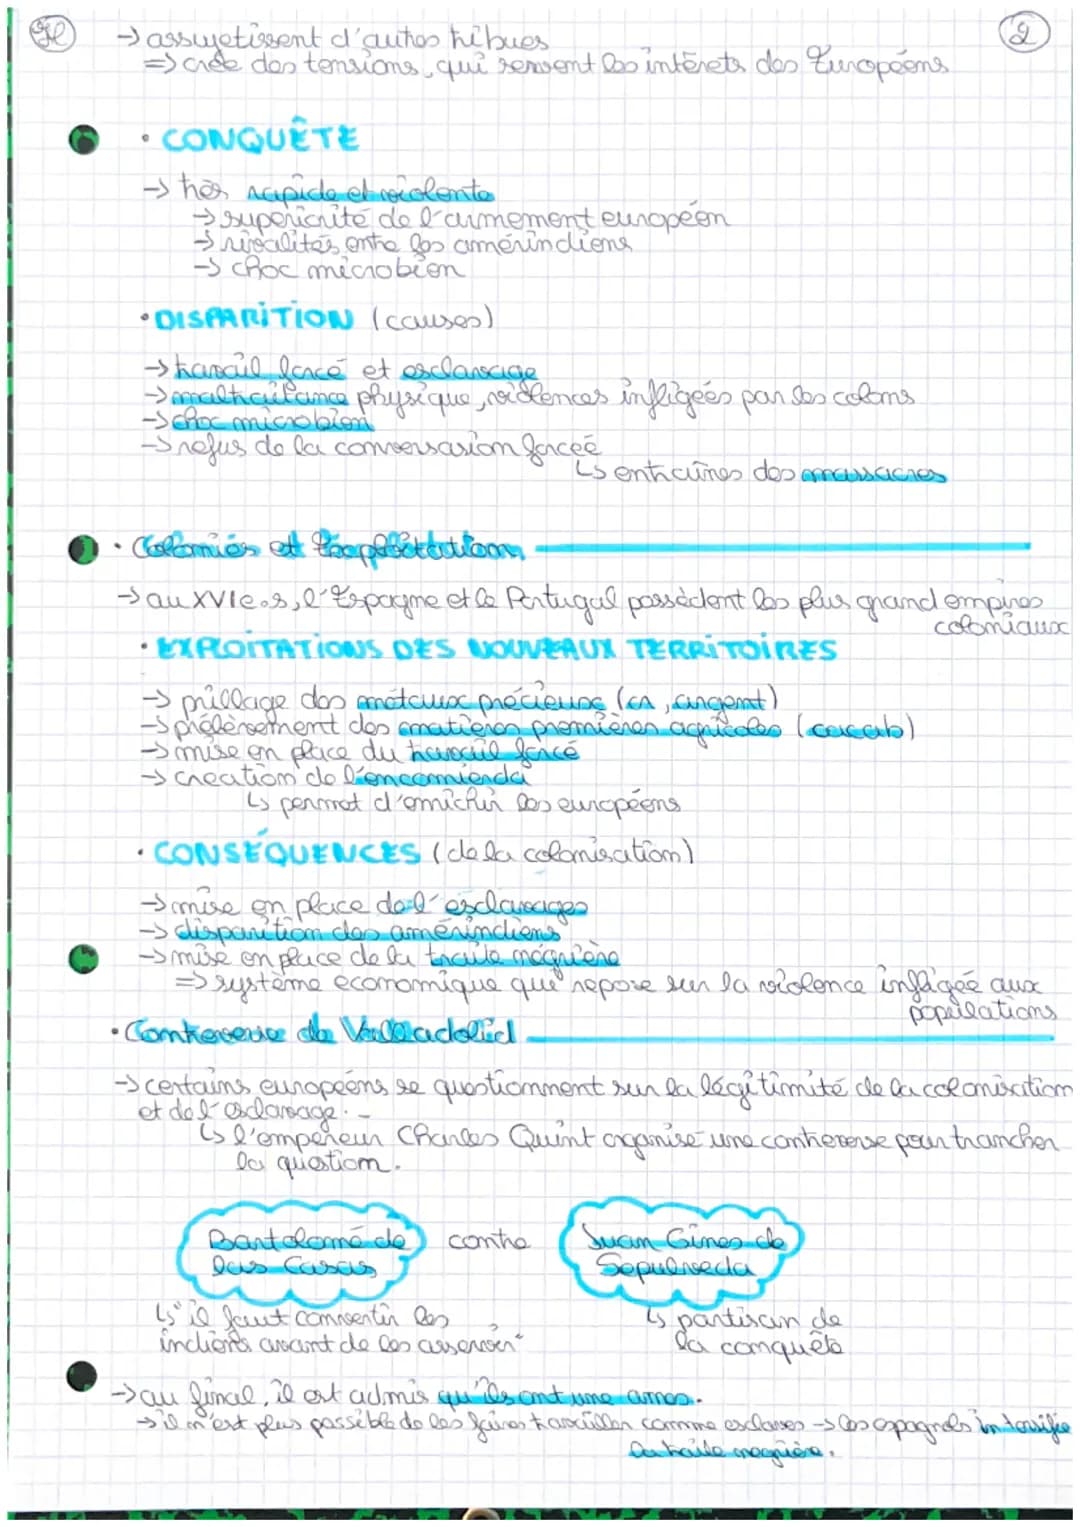 H
2
→ assujetissent d'autres tribues
⇒ crée des tensions, qui servent les intérets des Européens
• CONQUÊTE
→ très rapide et violente
→ supériorité de l'armement européen
→ rivalités entre les amérindiens
→ choc microbien
• DISPARITION (causes)
→ travail forcé et esclavage
→ maltraitance physique, violences infligées par les colons
→ choc microbien
→ refus de la conversasion forceé
↳ entraînes des massacres
• Colonies et Exploitation
→ au XVIe.s, l'Espagne et le Portugal possèdent les plus grand empires
coloniaux
• EXPLOITATIONS DES NOUVEAUX TERRITOIRES
→ pillage des métaux précieux (or, argent)
→ prélèvement des matières premières agricoles (cacao)
→ mise en place du travail forcé
→ creation de l'encomienda
↳ permet d'enrichir les européens
• CONSÉQUENCES (de la colonisation)
→ mise en place de l'esclavages
→ disparition des amérindiens
→ mise en place de la traite négrière
⇒ système economique qui repose sur la violence infligée aux
populations
• Controverse de Valladolid
→ certains européens se questionnent sur la légitimité de la colonisation
et de l'esclavage.
↳ l'empereur Charles Quint organise une controverse pour trancher
la question.
Bartolomé de contre Juan Gines de
las Casas Sepulveda
↳ "il faut convertir les ↳ partisan de
indiens avant de les asservir" la conquête
→ au final, il est admis qu'ils ont une ames.
→ il n'est plus possible de les faires travailler comme esclaves → les espagnols intensifie
la traite negrière.